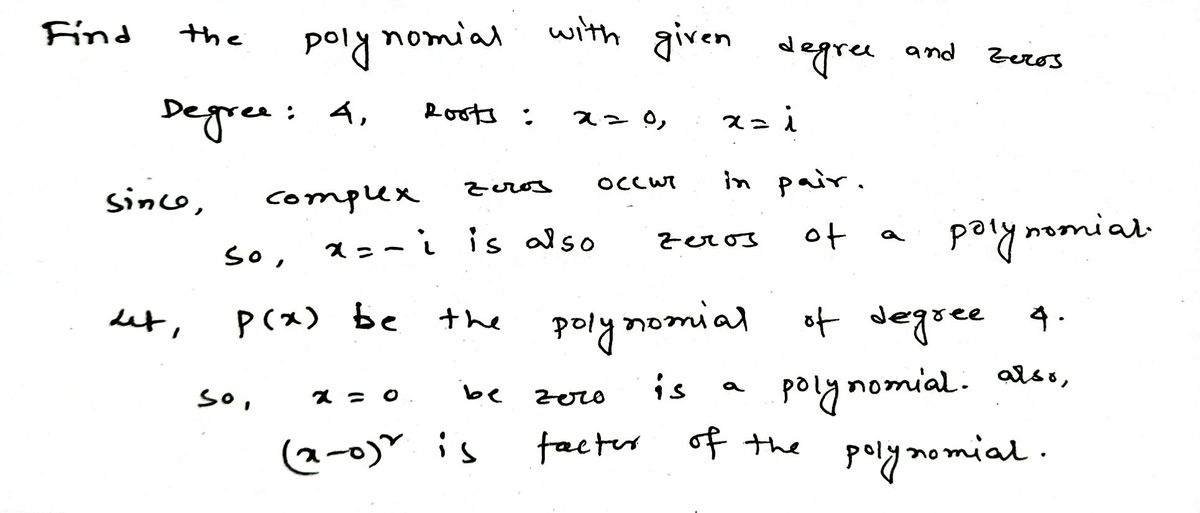 Find the polynomial with given degree and zeros
Degree: 4, Roots : x = 0, x = i
since, complex zeros occur in pair.
so, x = - i is also zeros of a polynomial.
let, P(x) be the polynomial of degree 4.
so, x = 0. be zero is a polynomial. also,
(x-0)² is factor of the polynomial.